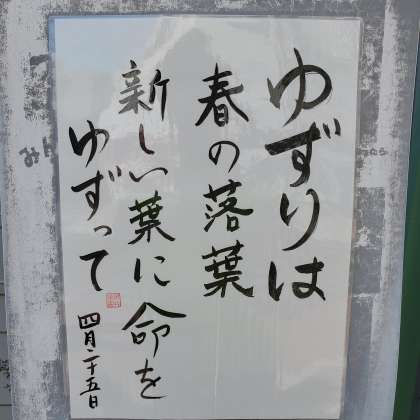 ゆずりは
春の落葉
新しい葉に命を
ゆずって
四月二十五日